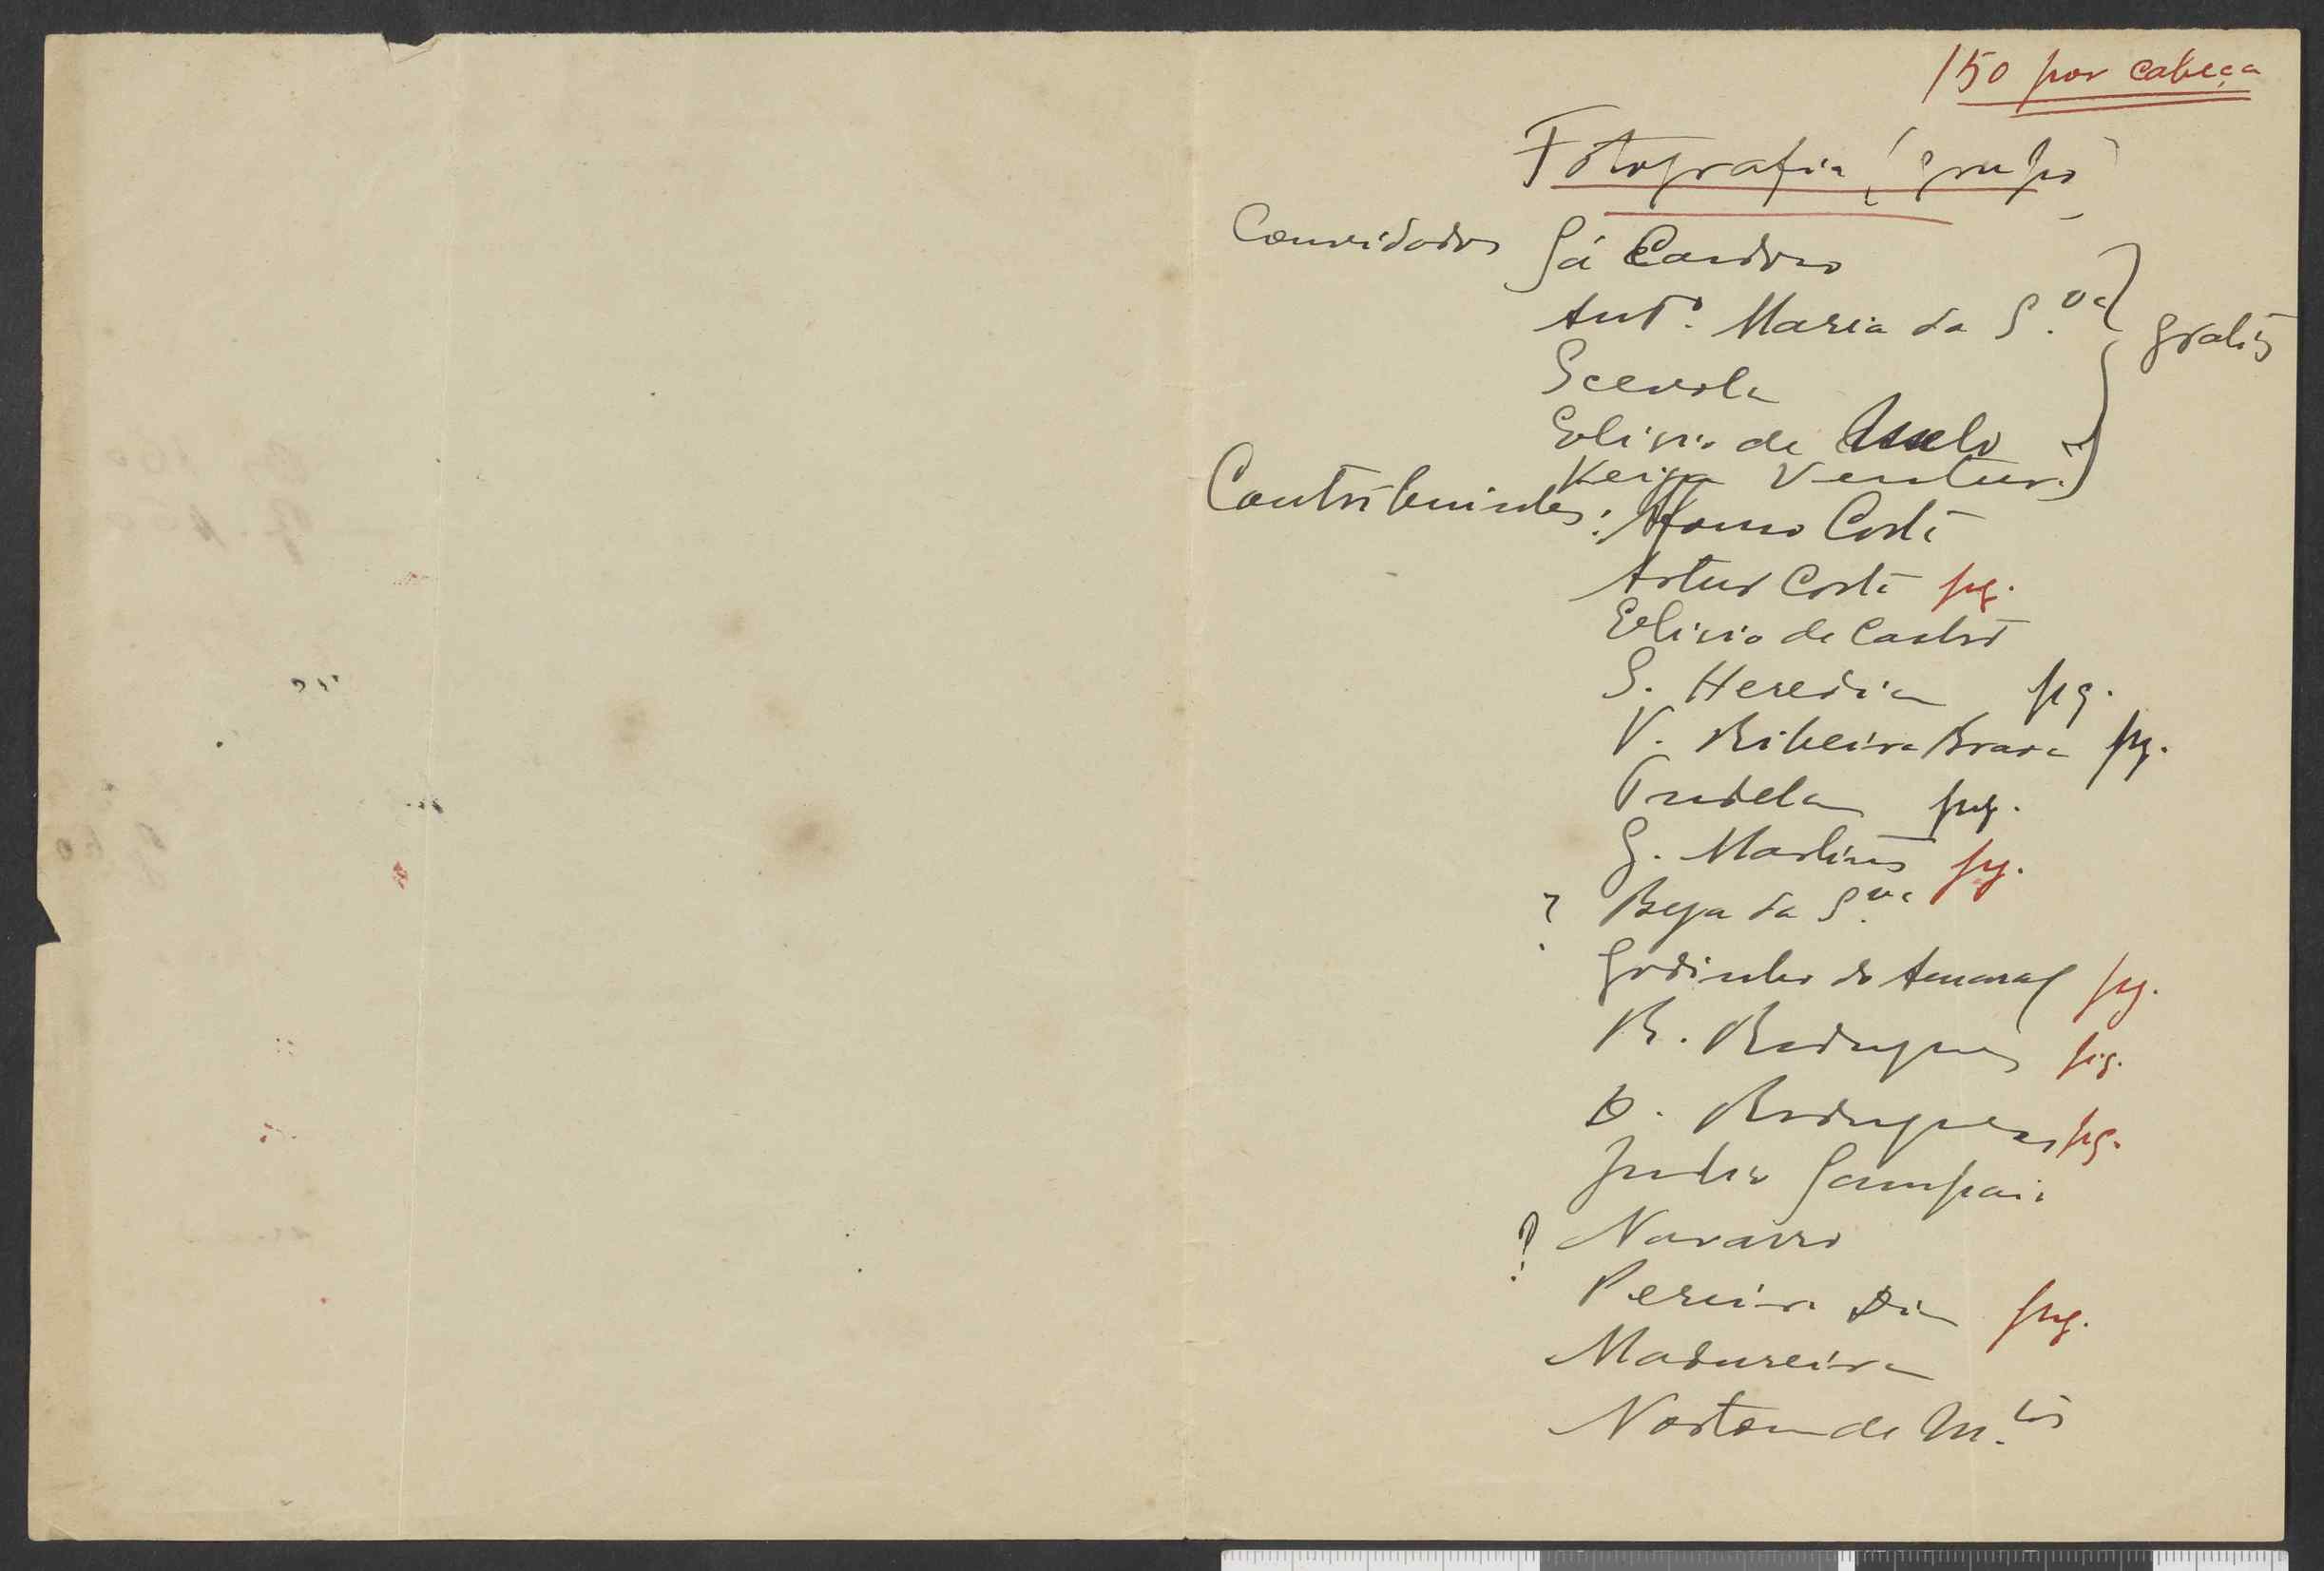 150 por cabeça
Fotografia (grupo)
Convidados Sá Cardoso
Antº. Maria da S.va
gratis
Scevola
Elisio de Melo
Veiga Ventura
Contribuintes: Afonso Costa
Artur Costa pg.
Elisio de Castro
S. Heredia pg.
V. Ribeira Brava pg.
Tudela pg.
G. Martins pg.
? Beja da S.va
Godinho do Amaral pg.
R. Rodrigues pg.
D. Rodrigues pg.
Julio Sampaio
? Navarro
Pereira pg.
Madureira
Norton de M.tos